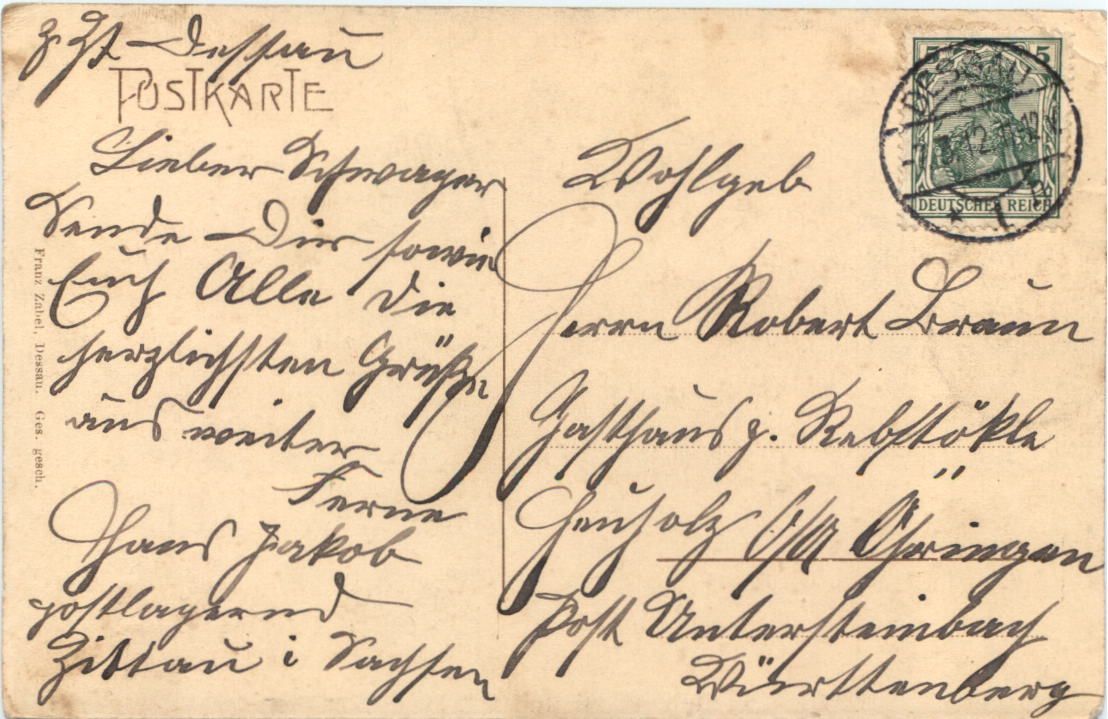 z. Zt Dessau
POSTKARTE
Lieber Schwager
Sende Dir sowie
Euch Alle die
herzlichsten Grüße
aus weiter
Ferne
Hans Jakob
postlagernd
Zittau i Sachsen
Franz Zabel, Dessau. Ges. gesch.
5 5
DEUTSCHES REICH
DESSAU
Wohlgeb
Herrn Robert Braun
Gasthaus z. Rebstökle
O/A Öhringen
Post Untersteinbach
Württenberg